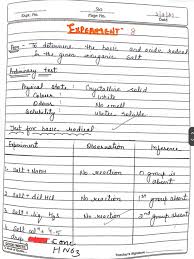 Expt. No.
Page No.
Date
EXPERIMENT 8
Aim - To determine the basic and acidic radical
in the given inorganic salt
Preliminary test
Physical state : Crystalline solid
Colour : White
Odour : No smell
Solubility : Water soluble
Test for basic radical
Experiment Observation Inference
1. Salt + NaOH No reaction 0 group is absent
2. Salt + dil HCl No reaction 1st group absent
3. Salt + dig H2S No reaction 2nd group absent
4. Salt + 4-5
drop conc
HNO3
Teacher's Signature